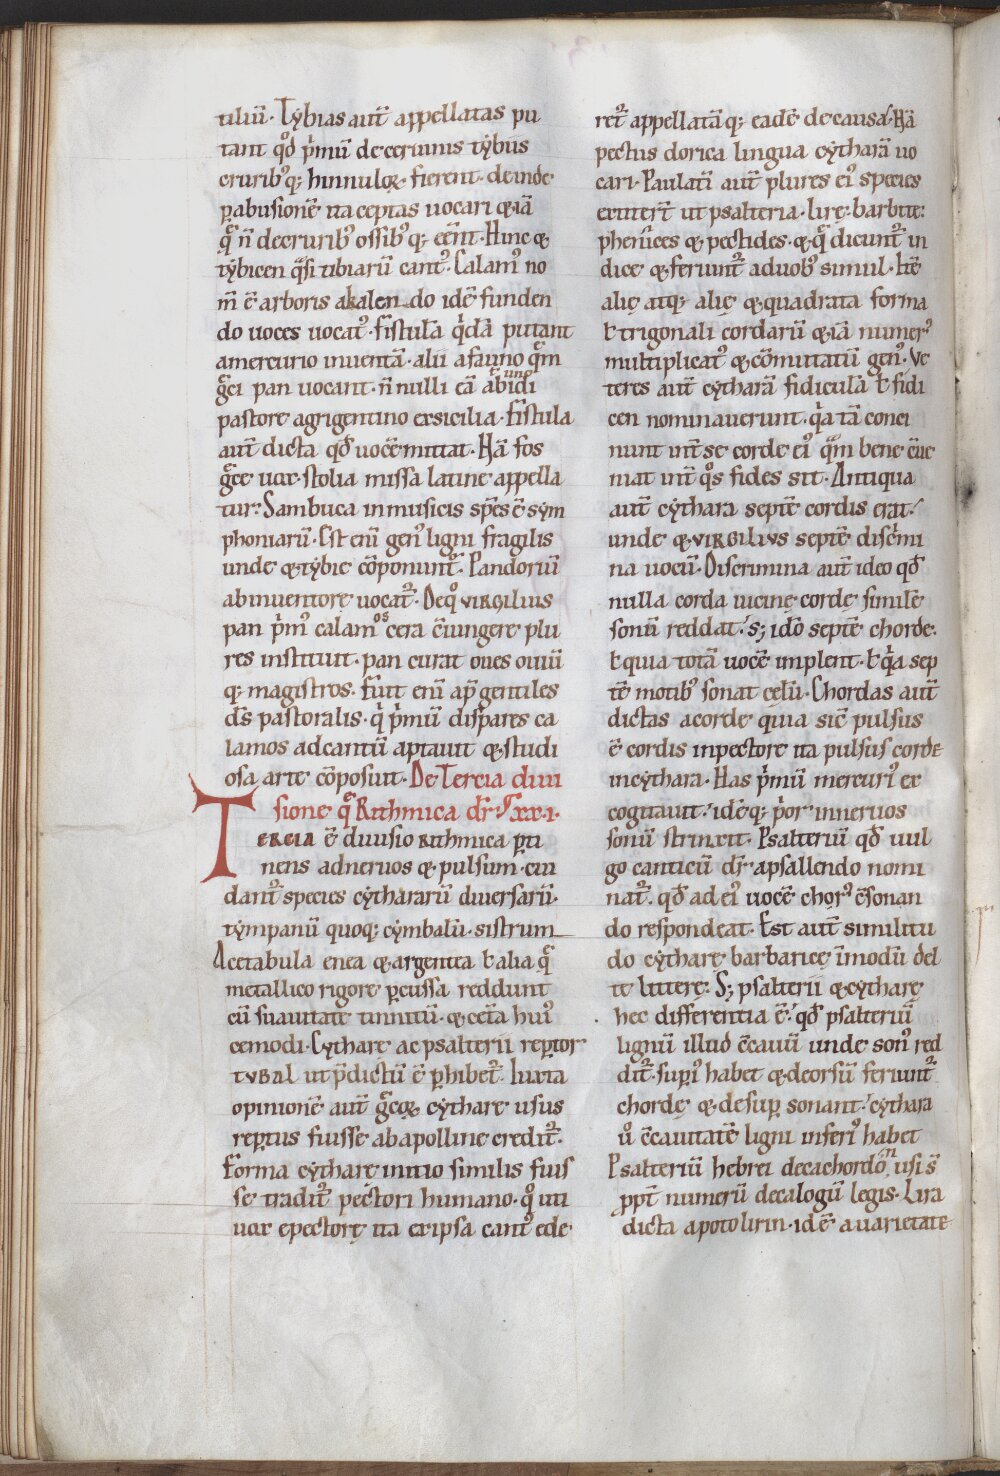 tiliū. Tẏbias aut̄ appellatas pu
tant qđ p̍mū de ceruinis tẏbiis
crurib⁹q; hinnuloꝝ. fierent. deinde
ꝑ abusionē ita ceptas uocari & iā
q̄ n̄ de crurib⁹ ossib⁹q; eēnt. Hinc &
tẏbicen q̄si tibiarū cant⁹. Calam⁹ no
m̄ ē arboris a kalendo idē funden
do uoces uocat⁹. fistulā q̍dā putant
a mercurio inuentā. alii a fauno quē
gr̄ci pan uocant. n̄ nulli eā ab idi
pastore agrigentino ex sicilia. fistula
aut̄ dicta qđ uocē mittat. Nā fos
gr̄ce uox. stolia missa latine appella
tur. Sambuca in musicis sp̄es ē sẏm
phoniarū. Est eni gen⁹ ligni fragilis
unde & tẏbie cōponunt̄. Pandoriū
ab inuentore uocat̄. De q̊ VIRGILIUS
pan p̍m⁹ calamos cera c̄iungere plu
res instituit. pan curat oues ouiū
q; magistros. fuit eni ap̄ gentiles
dſ pastoralis. q̍ p̍mū disꝑares ca
lamos ad cantū aptauit & studi
osa arte cōposuit. De Tercia diui
sione q̄ Rithmica dr̄. xx.i.
TERCIA ē diuisio rithmica ꝑti
nens ad neruos & pulsum. cui
dant̄ species cẏthararū diuersarū.
tẏmpanū quoq; cẏmbalū. sistrum
Acetabula enea & argentea ł alia q̄
metallico rigore ꝑcussa reddunt
cū suauitate tinnitū. & cet̄a hui⁹
cemodi. Cẏthare ac psalterii reꝑtor
TVBAL ut p̄dictū ē ꝑhibet̄. Iuxta
opinionē aut̄ gr̄coꝝ cẏthare usus
reꝑtus fuisse ab apolline credit̄.
Forma cẏthare initio similis fuis
se tradit̄ pectori humano. q̊ uti
uox e pectore ita ex ipsa cant⁹ ede
ret̄ appellatā q; eadē de causa. Nā
pectus dorica lingua cẏtharā uo
cari. Paulati aut̄ plures ei⁹ species
extiter̄t ut psalteria. lirę. barbite:
phenices & pectides. & q̄ dicunt̄ in
dice & feriunt̄ a duob⁹ simul. Itē
alię atq; alię & quadrata forma
ł trigonali cordarū & iā numer⁹
multiplicat⁹ & cōmutatū gen⁹. Ve
teres aut̄ cẏtharā fidiculā ł fidi
cen nominauerunt. q̍a tā conci
nunt int̄ se corde ei⁹ quā bene c̄ue
niat int̄ q̊s fides sit. Antiqua
aut̄ cẏthara septē cordis erat.
unde & VIRGILIVS septē discrimi
na uocū. Discrimina aut̄ ideo qđ
nulla corda uicinę cordę similē
sonū reddat. S; idō septē chorde.
ł quia totā uocē implent. ł q̍a sep
tē motib⁹ sonat cęlū. Chordas aut̄
dictas a corde quia sic̄ pulsus
ē cordis in pectore ita pulsus corde
in cẏthara. Has p̍mū mercuri⁹ ex
cogitauit. idēq; p̍or in neruos
sonū strinxit. Psalteriū qđ uul
go canticū dr̄ a psallendo nomi
nat̄. qđ ad ei⁹ uocē chor⁹ c̄sonan
do respondeat. Est aut̄ similitu
do cẏtharę barbaricę ī modū del
te littere. S; psalterii & cẏtharę
hec differentia ē. qđ psalteriū
lignū illud c̄cauū unde son⁹ red
dit̄. suꝑi⁹ habet & deorsū feriunt̄
chordę & desuꝑ sonant. cẏthara
ů c̄cauitatē ligni inferi⁹ habet
Psalteriū hebrei decachordōn usi s̄
ꝓpt̄ numerū decalogū legis. Lira
dicta apoto lirin. id ē a uarietate